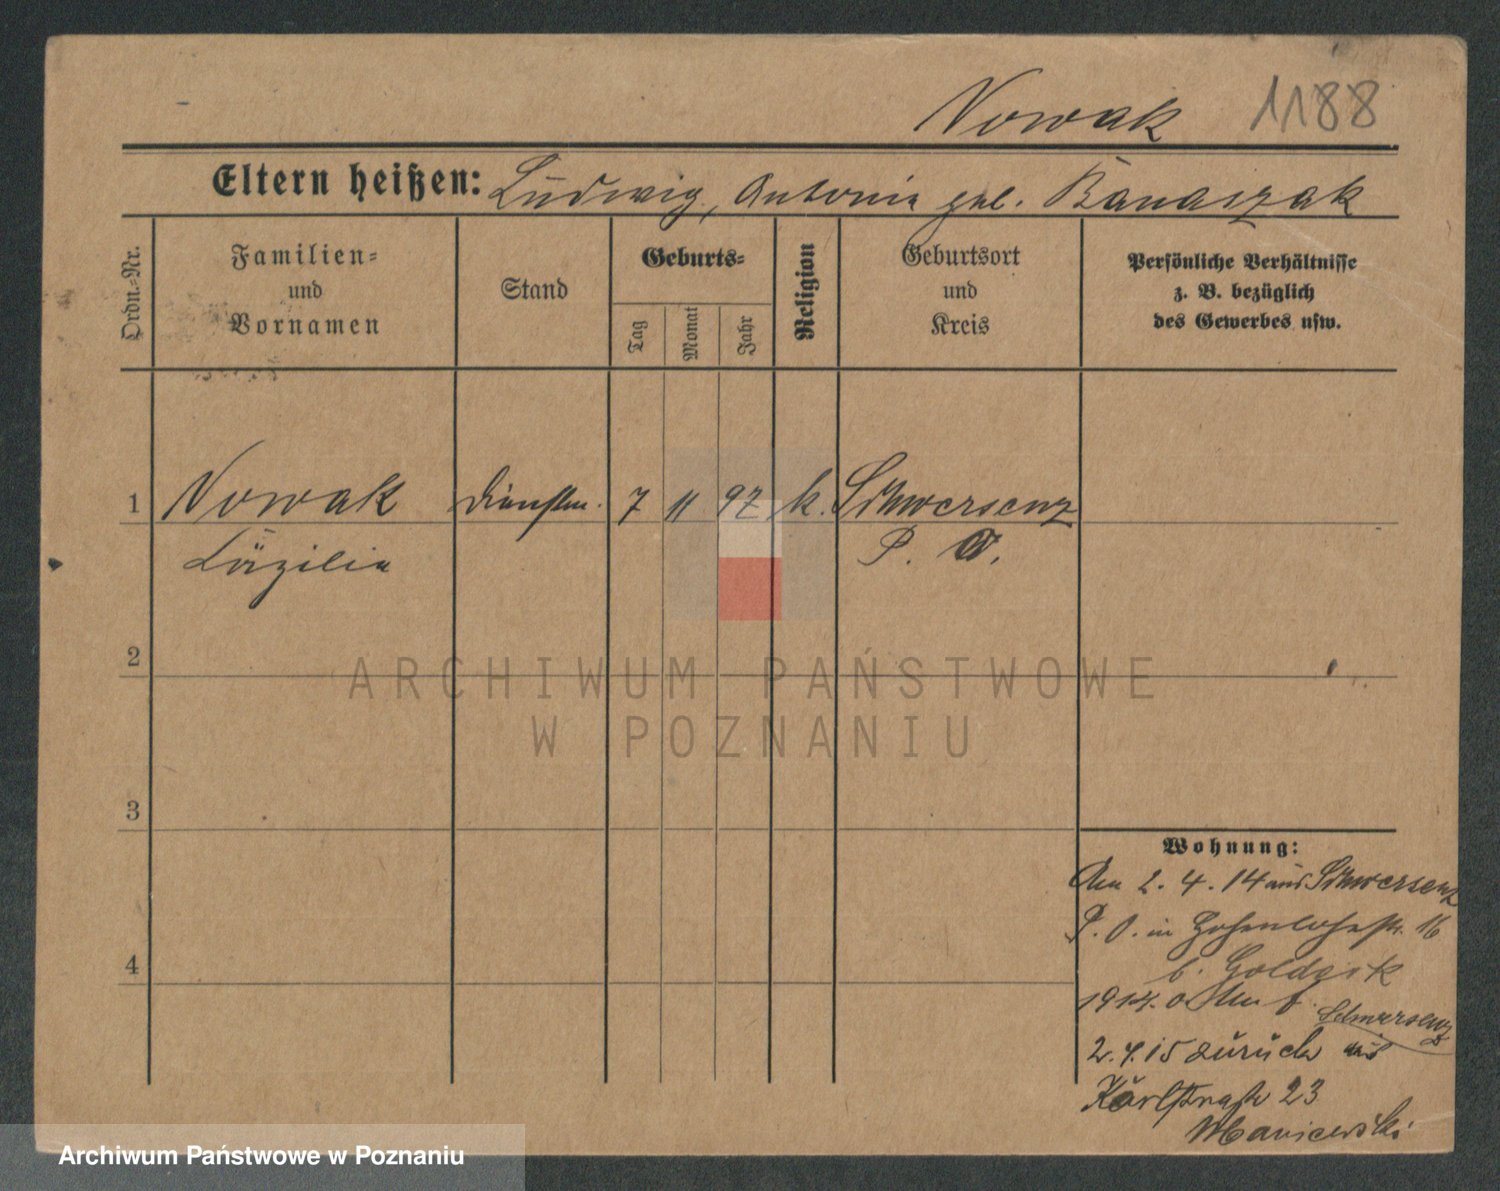 Nowak 1188
Eltern heißen: Ludwig, Antonie geb. Banaszak
Ordn.-Nr.
Familien-
und
Vornamen
Stand
Geburts-
Tag
Monat
Jahr
Religion
Geburtsort
und
Kreis
Persönliche Verhältnisse
z. B. bezüglich
des Gewerbes usw.
1 Nowak Dienstm. 7 11 97 k. Schwersenz
Cäzilie P. O.
2
3
4
Wohnung:
Am 2. 4. 14 aus Schwersenz
P. O. in Hohenlohestr. 16
b.
1914. Schwersenz
2. 4. 15 zurück
Karlstraße 23
ARCHIWUM PAŃSTWOWE
W POZNANIU
Archiwum Państwowe w Poznaniu